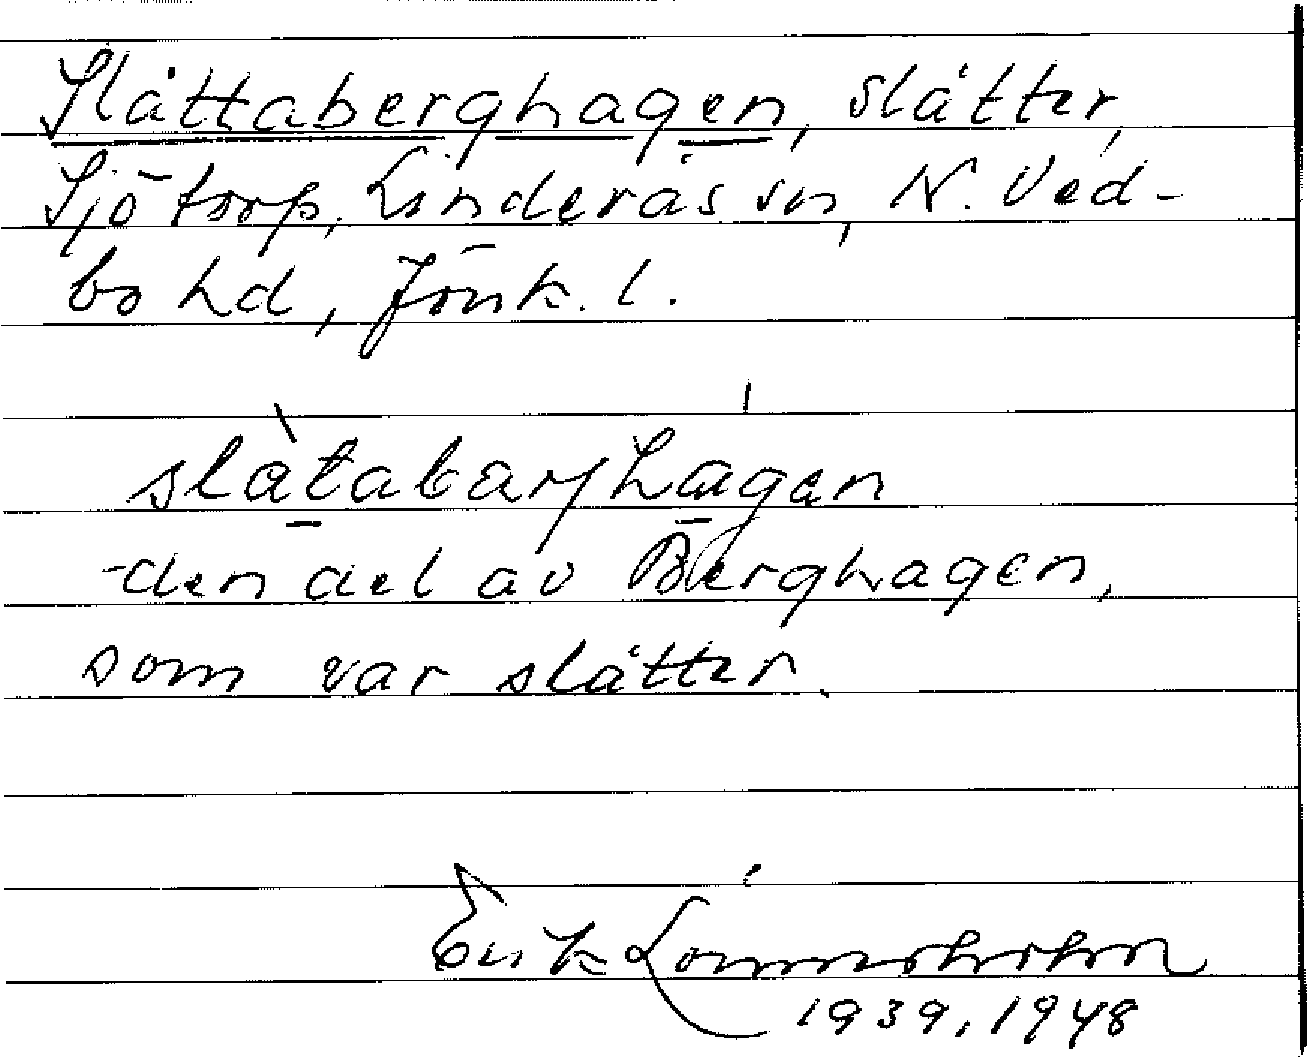 Slåttaberghagen, slåtter,
Sjötorp, Linderås sn, N. Ved-
bo hd, Jönk. l.
slåtabarjhagen
-den del av Berghagen,
som var slåtter.
Erik
1939, 1948